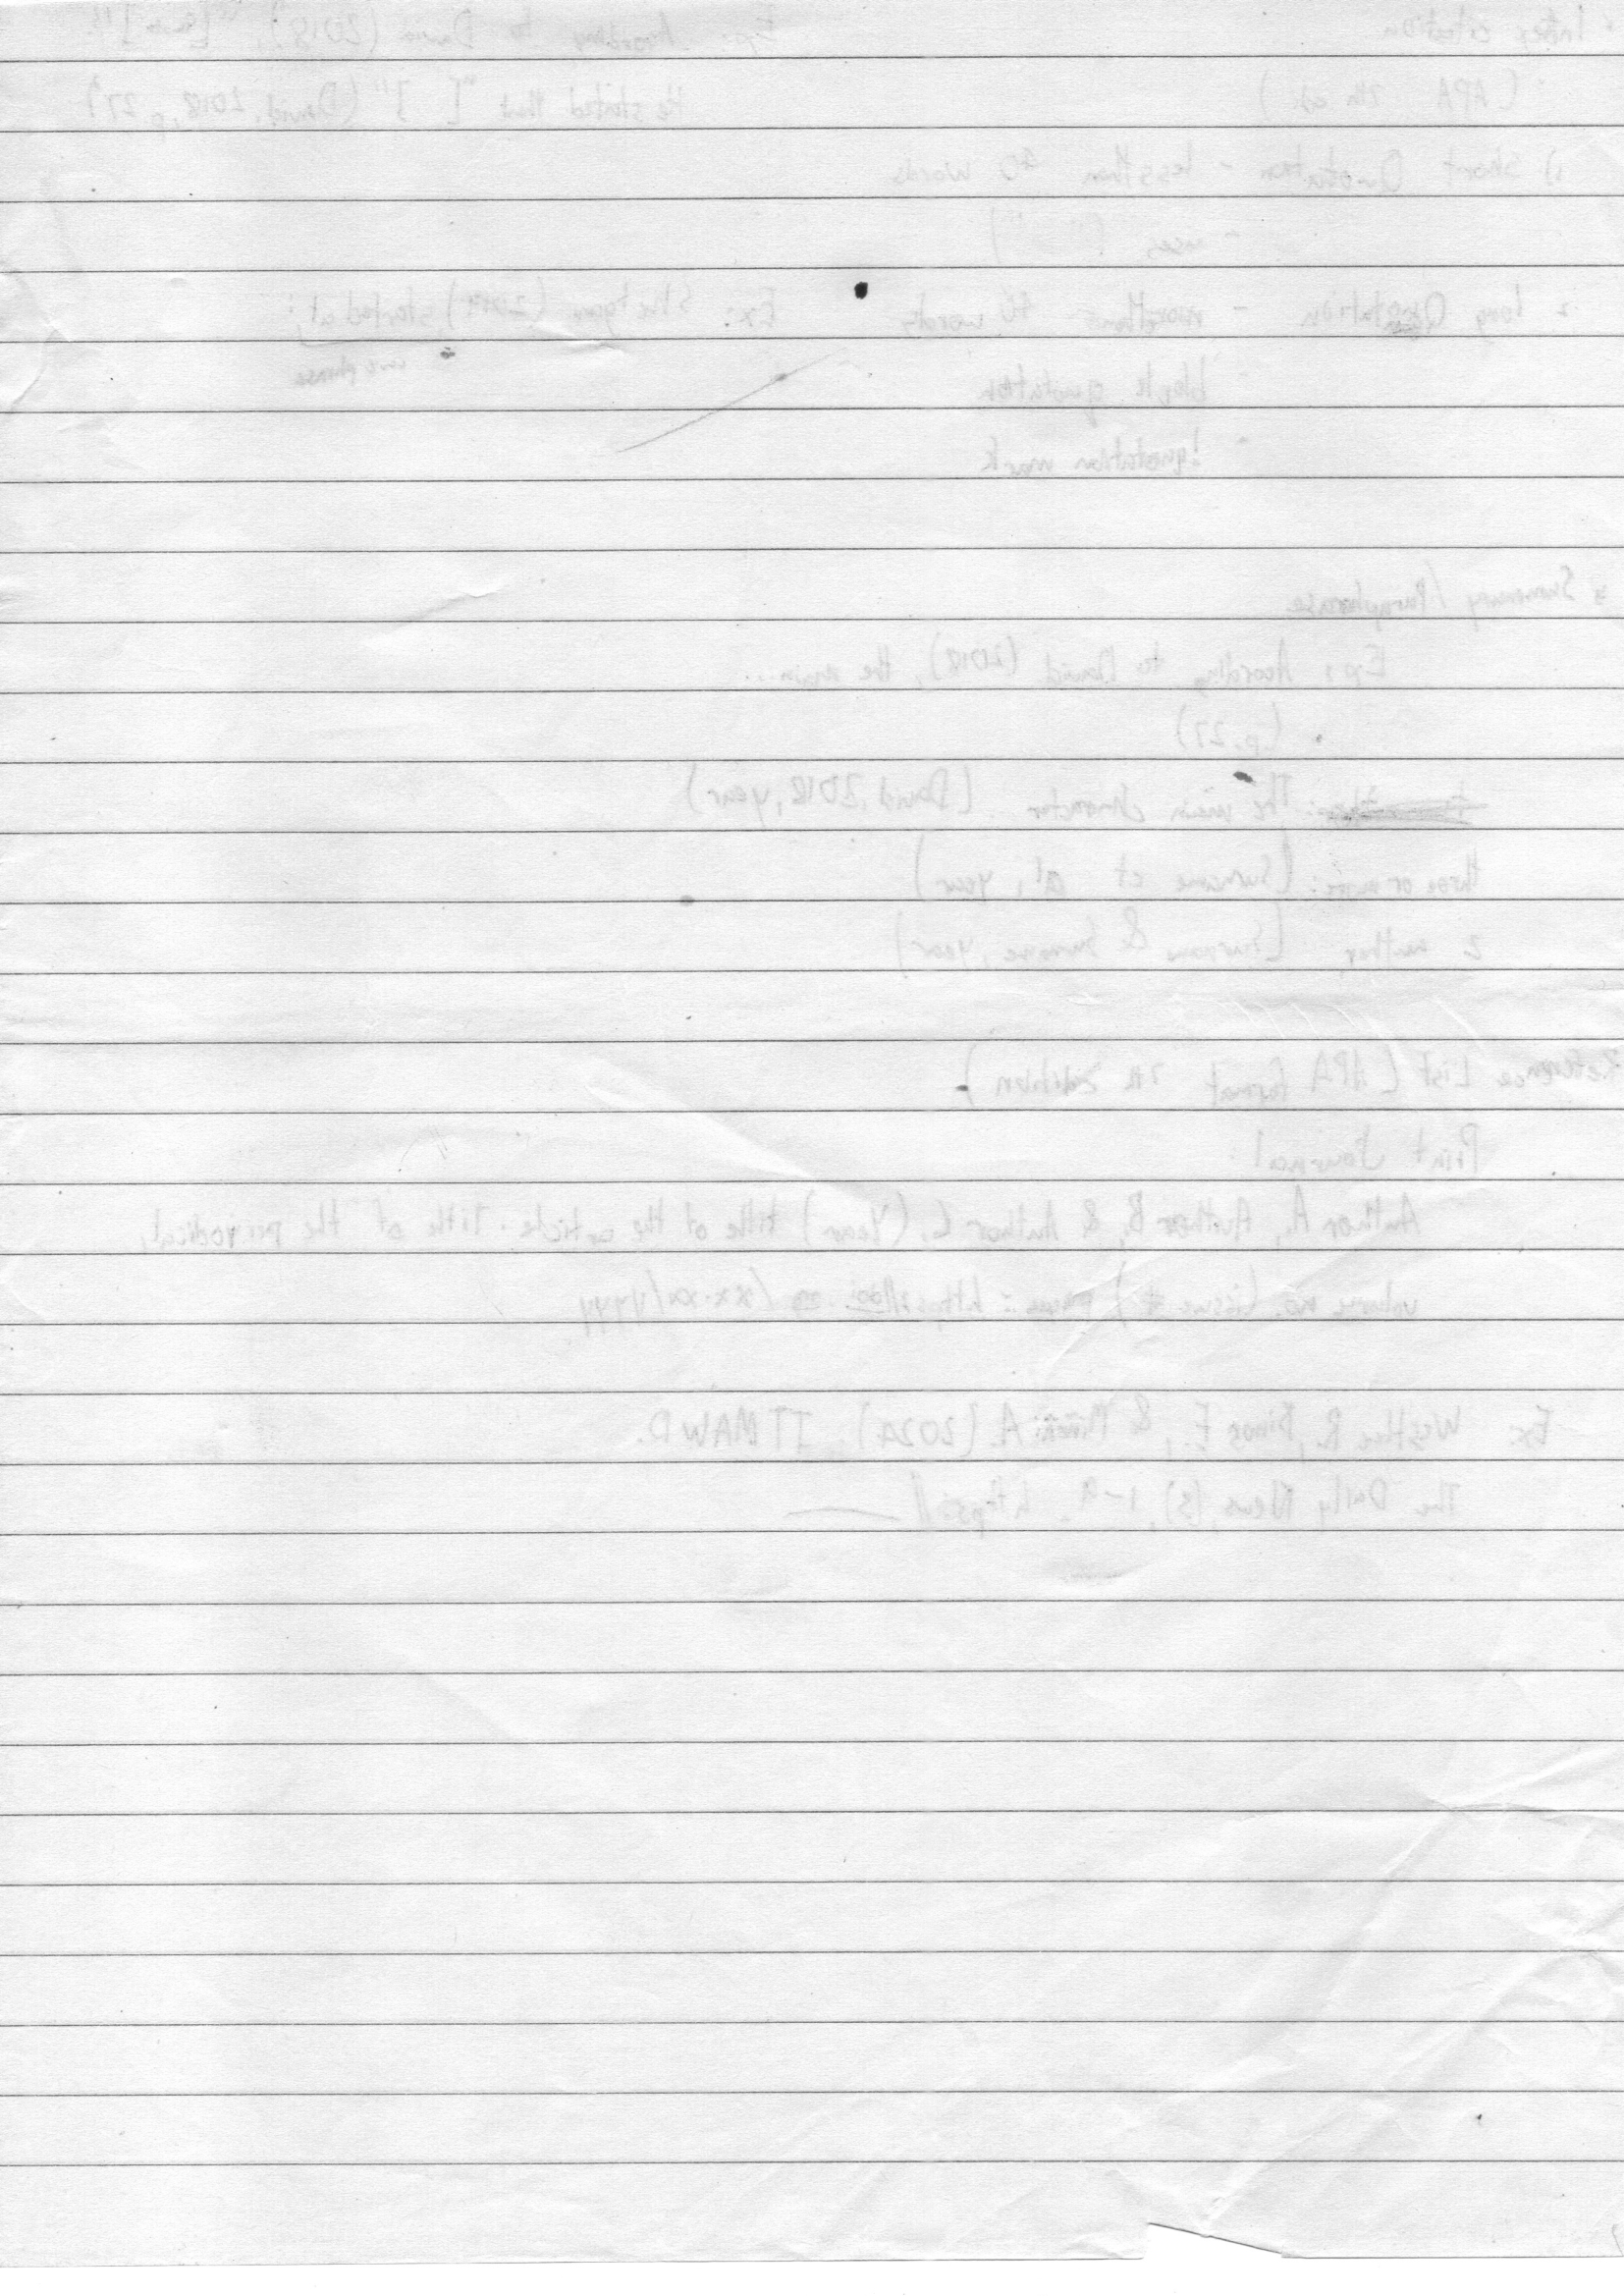 Intex citation Exp: According to David (2018), "[ ]".
(APA 7th ed) He stated that "[ ]" (David, 2018, p. 27)
1) Short Quotation - less than 40 words
- uses (" ")
2 Long Quotation - more than 40 words Ex: (2019), started at,:
- block quotation
- !quotation mark
Summary / Paraphrase
Exp: Acording to David (2018), the main...
(p. 27)
The main character (David, 2018, year)
three or more: (Surname et al, year)
2 author (Surname & Surname, year)
Reference List (APA format 7th Edition)
Print Journal:
Author A, Author B, & Author C, (Year) title of the article. Title of the periodical,
volume no. (issue #), pages :: https://doi.org/xx.xx/yyyy
Ex: R, E, & A. (2024). ITMAWD.
The Daily News, (3), 1-9. https://